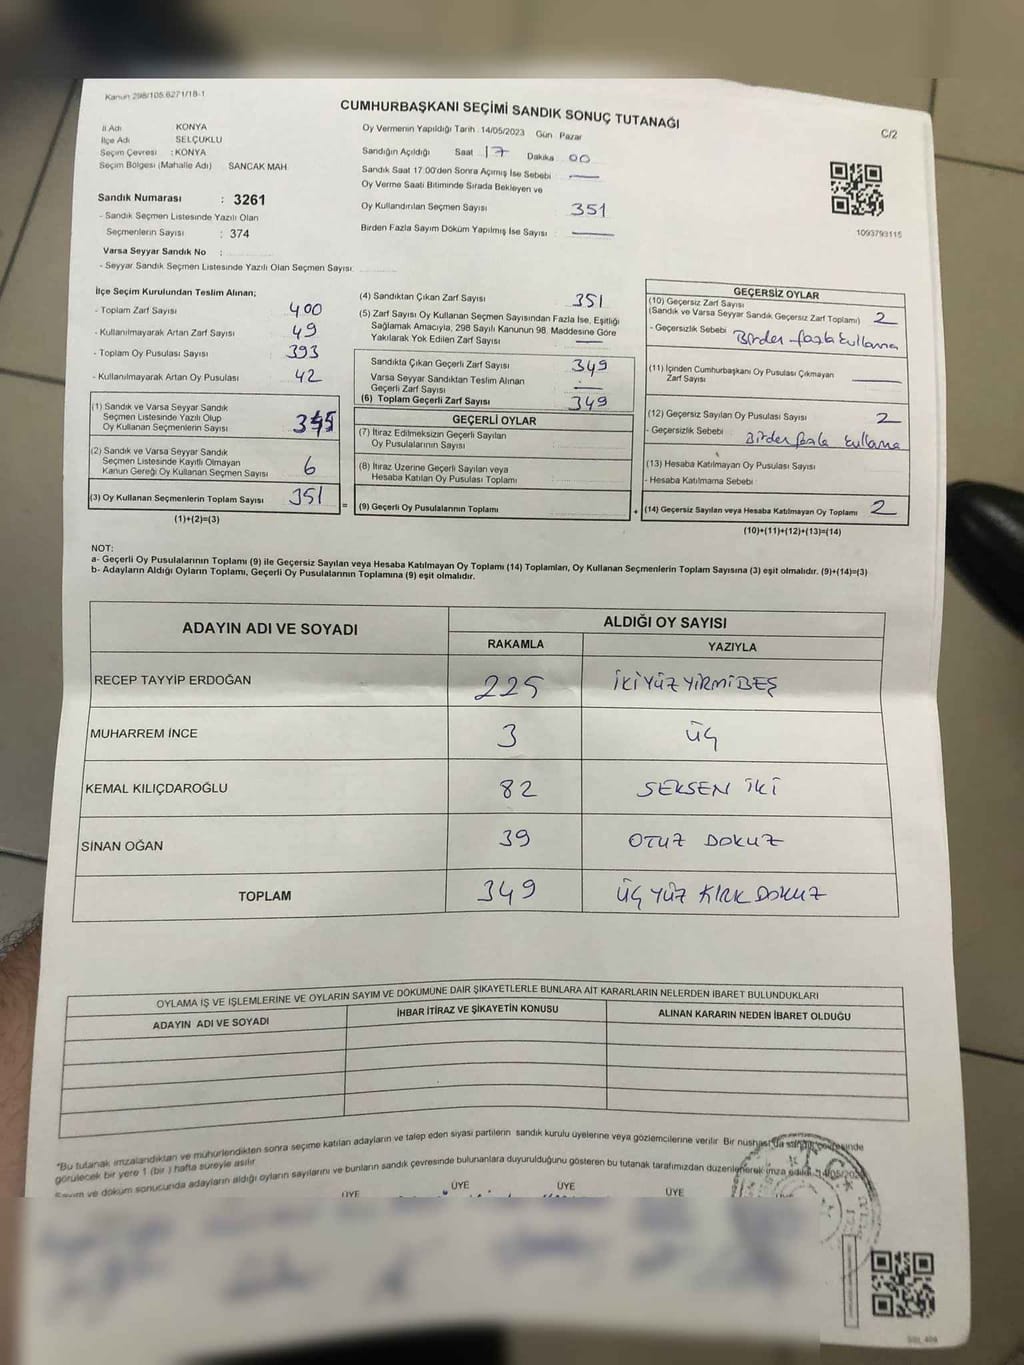 Kanun 298/105.6271/18-1
CUMHURBAŞKANI SEÇİMİ SANDIK SONUÇ TUTANAĞI
C/2
İl Adı KONYA
İlçe Adı SELÇUKLU
Seçim Çevresi : KONYA
Seçim Bölgesi (Mahalle Adı) SANCAK MAH
Sandık Numarası : 3261
- Sandık Seçmen Listesinde Yazılı Olan
Seçmenlerin Sayısı : 374
Varsa Seyyar Sandık No :
- Seyyar Sandık Seçmen Listesinde Yazılı Olan Seçmen Sayısı:
Oy Vermenin Yapıldığı Tarih : 14/05/2023 Gün Pazar
Sandığın Açıldığı Saat 17 Dakika 00
Sandık Saat 17.00'den Sonra Açımış İse Sebebi —
Oy Verme Saati Bitiminde Sırada Bekleyen ve
Oy Kullandırılan Seçmen Sayısı 351
Birden Fazla Sayım Döküm Yapılmış İse Sayısı : —
1093793115
İlçe Seçim Kurulundan Teslim Alınan;
- Toplam Zarf Sayısı 400
- Kullanılmayarak Artan Zarf Sayısı 49
- Toplam Oy Pusulası Sayısı 393
- Kullanılmayarak Artan Oy Pusulası 42
(1) Sandık ve Varsa Seyyar Sandık
Seçmen Listesinde Yazılı Olup
Oy Kullanan Seçmenlerin Sayısı 345
(2) Sandık ve Varsa Seyyar Sandık
Seçmen Listesinde Kayıtlı Olmayan
Kanun Gereği Oy Kullanan Seçmen Sayısı 6
(3) Oy Kullanan Seçmenlerin Toplam Sayısı 351
(1)+(2)=(3)
=
(4) Sandıktan Çıkan Zarf Sayısı 351
(5) Zarf Sayısı Oy Kullanan Seçmen Sayısından Fazla İse, Eşitliği
Sağlamak Amacıyla, 298 Sayılı Kanunun 98. Maddesine Göre
Yakılarak Yok Edilen Zarf Sayısı —
Sandıkta Çıkan Geçerli Zarf Sayısı 349
Varsa Seyyar Sandıktan Teslim Alınan
Geçerli Zarf Sayısı —
(6) Toplam Geçerli Zarf Sayısı 349
GEÇERLİ OYLAR
(7) İtiraz Edilmeksizin Geçerli Sayılan
Oy Pusulalarının Sayısı
(8) İtiraz Üzerine Geçerli Sayılan veya
Hesaba Katılan Oy Pusulası Toplamı
(9) Geçerli Oy Pusulalarının Toplamı
+
GEÇERSİZ OYLAR
(10) Geçersiz Zarf Sayısı
(Sandık ve Varsa Seyyar Sandık Geçersiz Zarf Toplamı) 2
- Geçersizlik Sebebi Birden fazla kullanma
(11) İçinden Cumhurbaşkanı Oy Pusulası Çıkmayan
Zarf Sayısı —
(12) Geçersiz Sayılan Oy Pusulası Sayısı 2
- Geçersizlik Sebebi Birden fazla kullanma
(13) Hesaba Katılmayan Oy Pusulası Sayısı
- Hesaba Katılmama Sebebi
(14) Geçersiz Sayılan veya Hesaba Katılmayan Oy Toplamı 2
(10)+(11)+(12)+(13)=(14)
NOT:
a- Geçerli Oy Pusulalarının Toplamı (9) ile Geçersiz Sayılan veya Hesaba Katılmayan Oy Toplamı (14) Toplamları, Oy Kullanan Seçmenlerin Toplam Sayısına (3) eşit olmalıdır. (9)+(14)=(3)
b- Adayların Aldığı Oyların Toplamı, Geçerli Oy Pusulalarının Toplamına (9) eşit olmalıdır.
ADAYIN ADI VE SOYADI ALDIĞI OY SAYISI
RAKAMLA YAZIYLA
RECEP TAYYİP ERDOĞAN 225 İKİYÜZ YİRMİBEŞ
MUHARREM İNCE 3 ÜÇ
KEMAL KILIÇDAROĞLU 82 SEKSEN İKİ
SİNAN OĞAN 39 OTUZ DOKUZ
TOPLAM 349 ÜÇ YÜZ KIRK DOKUZ
OYLAMA İŞ VE İŞLEMLERİNE VE OYLARIN SAYIM VE DÖKÜMÜNE DAİR ŞİKAYETLERLE BUNLARA AİT KARARLARIN NELERDEN İBARET BULUNDUKLARI
ADAYIN ADI VE SOYADI İHBAR İTİRAZ VE ŞİKAYETİN KONUSU ALINAN KARARIN NEDEN İBARET OLDUĞU
*Bu tutanak imzalandıktan ve mühürlendikten sonra seçime katılan adayların ve talep eden siyasi partilerin sandık kurulu üyelerine veya gözlemcilerine verilir. Bir nushası da sandık çevresinde
görülecek bir yere 1 (bir) hafta süreyle asılır.
Sayım ve döküm sonucunda adayların aldığı oyların sayılarını ve bunların sandık çevresinde bulunanlara duyurulduğunu gösteren bu tutanak tarafımızdan düzenlenerek imza edildi.
ÜYE ÜYE ÜYE ÜYE